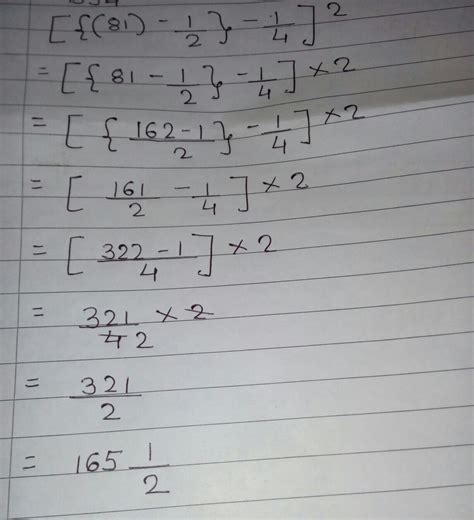 [{(81) - 1/2} - 1/4]²
= [{81 - 1/2} - 1/4] × 2
= [{162-1/2} - 1/4] × 2
= [161/2 - 1/4] × 2
= [322-1/4] × 2
= 321/4 2 × 2
= 321/2
= 165 1/2